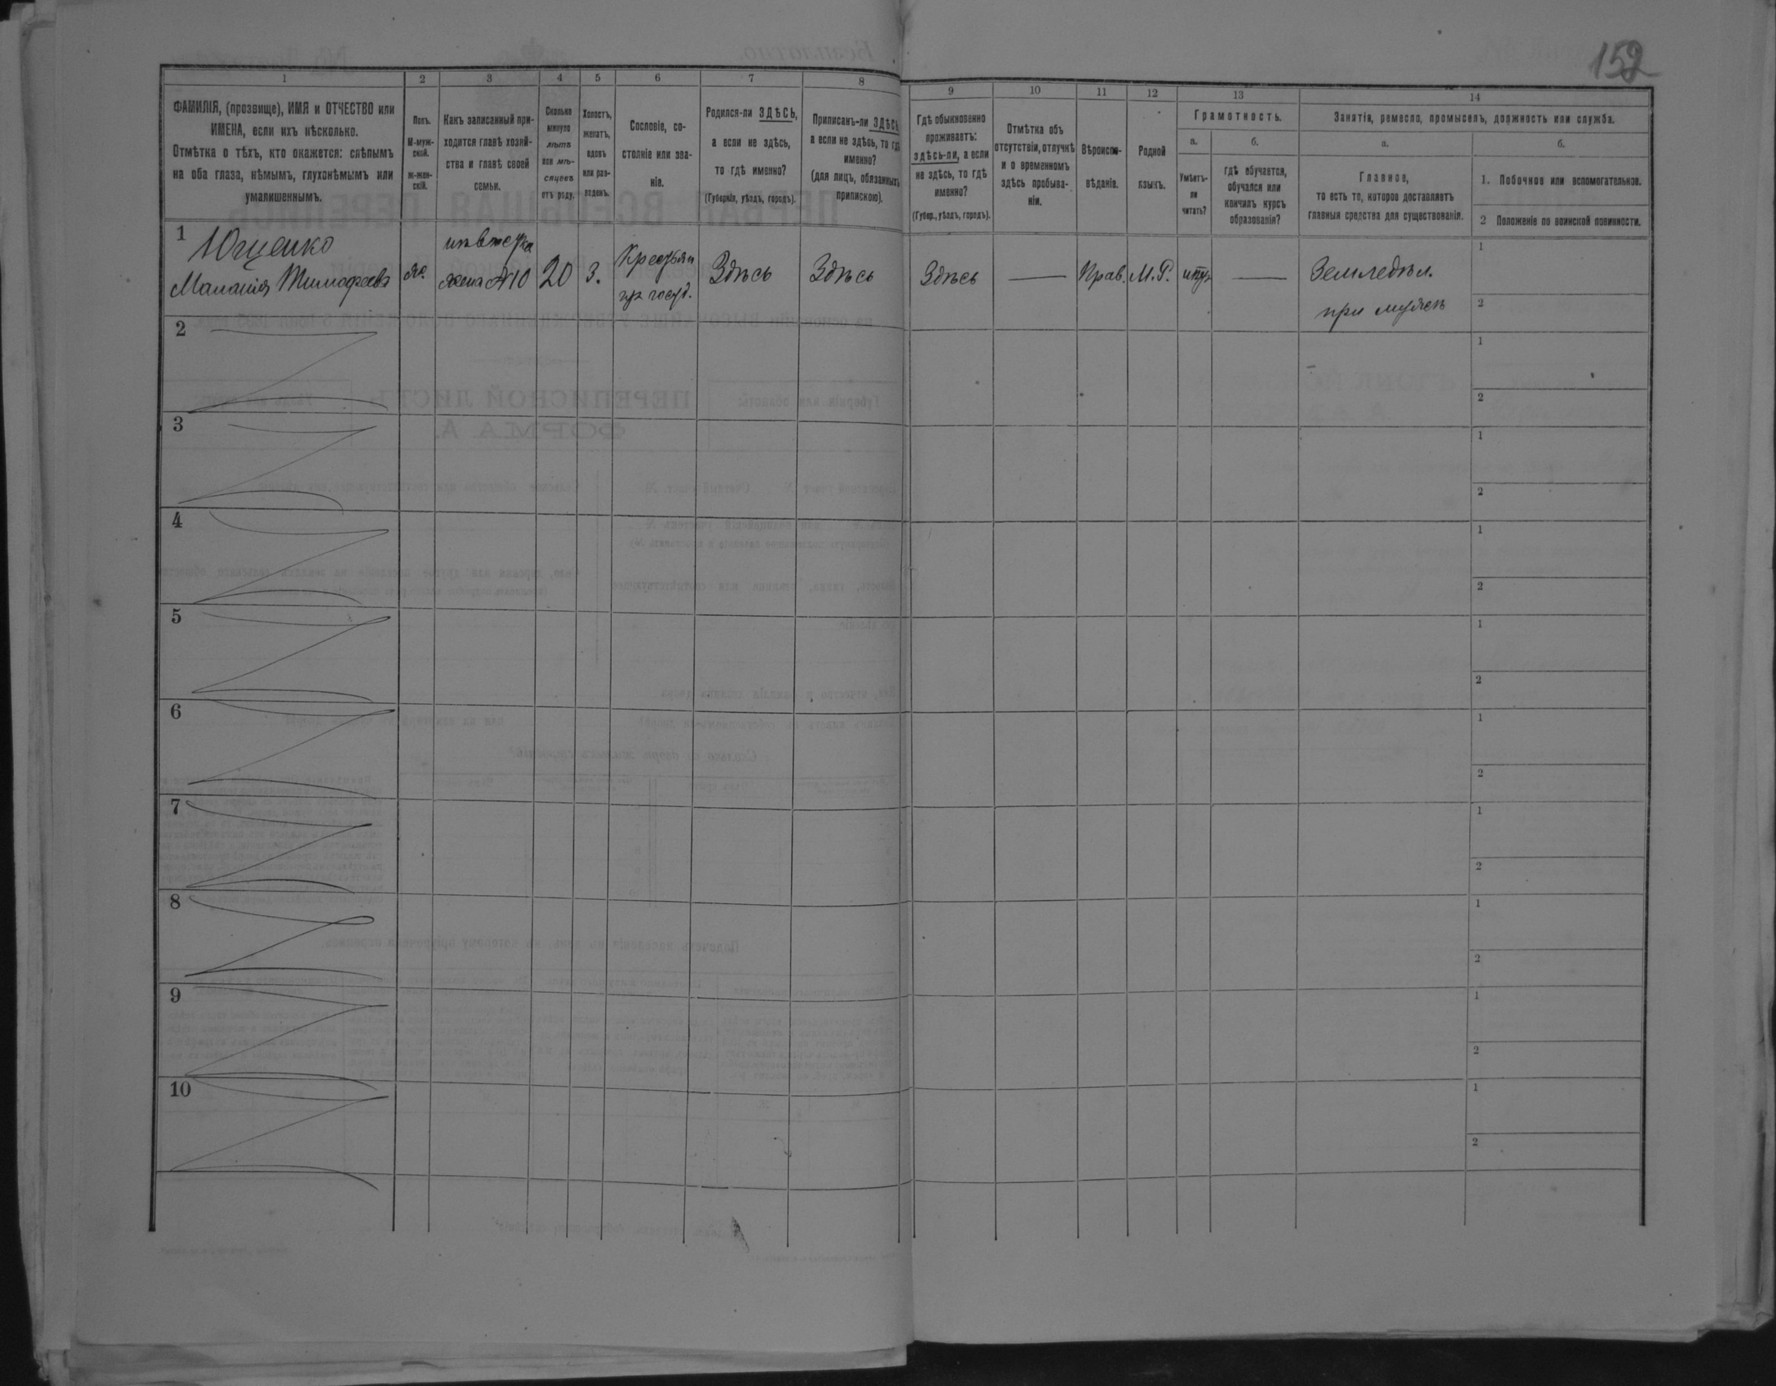 152
1 2 3 4 5 6 7 8 9 10 11 12 13 14
ФАМИЛІЯ, (прозвище), ИМЯ и ОТЧЕСТВО или
ИМЕНА, если ихъ нѣсколько.
Отмѣтка о тѣхъ, кто окажется: слѣпымъ
на оба глаза, нѣмымъ, глухонѣмымъ или
умалишеннымъ.
Полъ.
М-муж-
ской.
Ж-жен-
скій.
Какъ записанный при-
ходится главѣ хозяй-
ства и главѣ своей
семьи.
Сколько
минуло
лѣтъ
или мѣ-
сяцевъ
отъ роду.
Холостъ,
женатъ,
вдовъ
или раз-
веденъ.
Сословіе, со-
стояніе или зва-
ніе.
Родился-ли ЗДѢСЬ,
а если не здѣсь,
то гдѣ именно?
(Губернія, уѣздъ, городъ).
Приписанъ-ли ЗДѢСЬ
а если не здѣсь, то гдѣ
именно?
(для лицъ, обязанныхъ
припискою).
Гдѣ обыкновенно
проживаетъ:
здѣсь-ли, а если
не здѣсь, то гдѣ
именно?
(Губер., уѣздъ, городъ).
Отмѣтка объ
отсутствіи, отлучкѣ
и о временномъ
здѣсь пребыва-
ніи.
Вѣроиспо-
вѣданіе.
Родной
языкъ.
Грамотность.
а.
Умѣетъ-
ли
читать?
б.
гдѣ обучается,
обучался или
кончилъ курсъ
образованія?
Занятія, ремесло, промыселъ, должность или служба.
а.
Главное,
то есть то, которое доставляетъ
главныя средства для существованія.
б.
1. Побочное или вспомогательное.
2 Положеніе по воинской повинности.
1
Ющенко
Маланія Тимофеева
ж.
невѣстка
жена №10
20
з.
Крестьян
Здѣсь
Здѣсь
Здѣсь
—
Прав.
М.Р.
—
Земледѣл.
при мужѣ
1
2
2
1
2
3
1
2
4
1
2
5
1
2
6
1
2
7
1
2
8
1
2
9
1
2
10
1
2